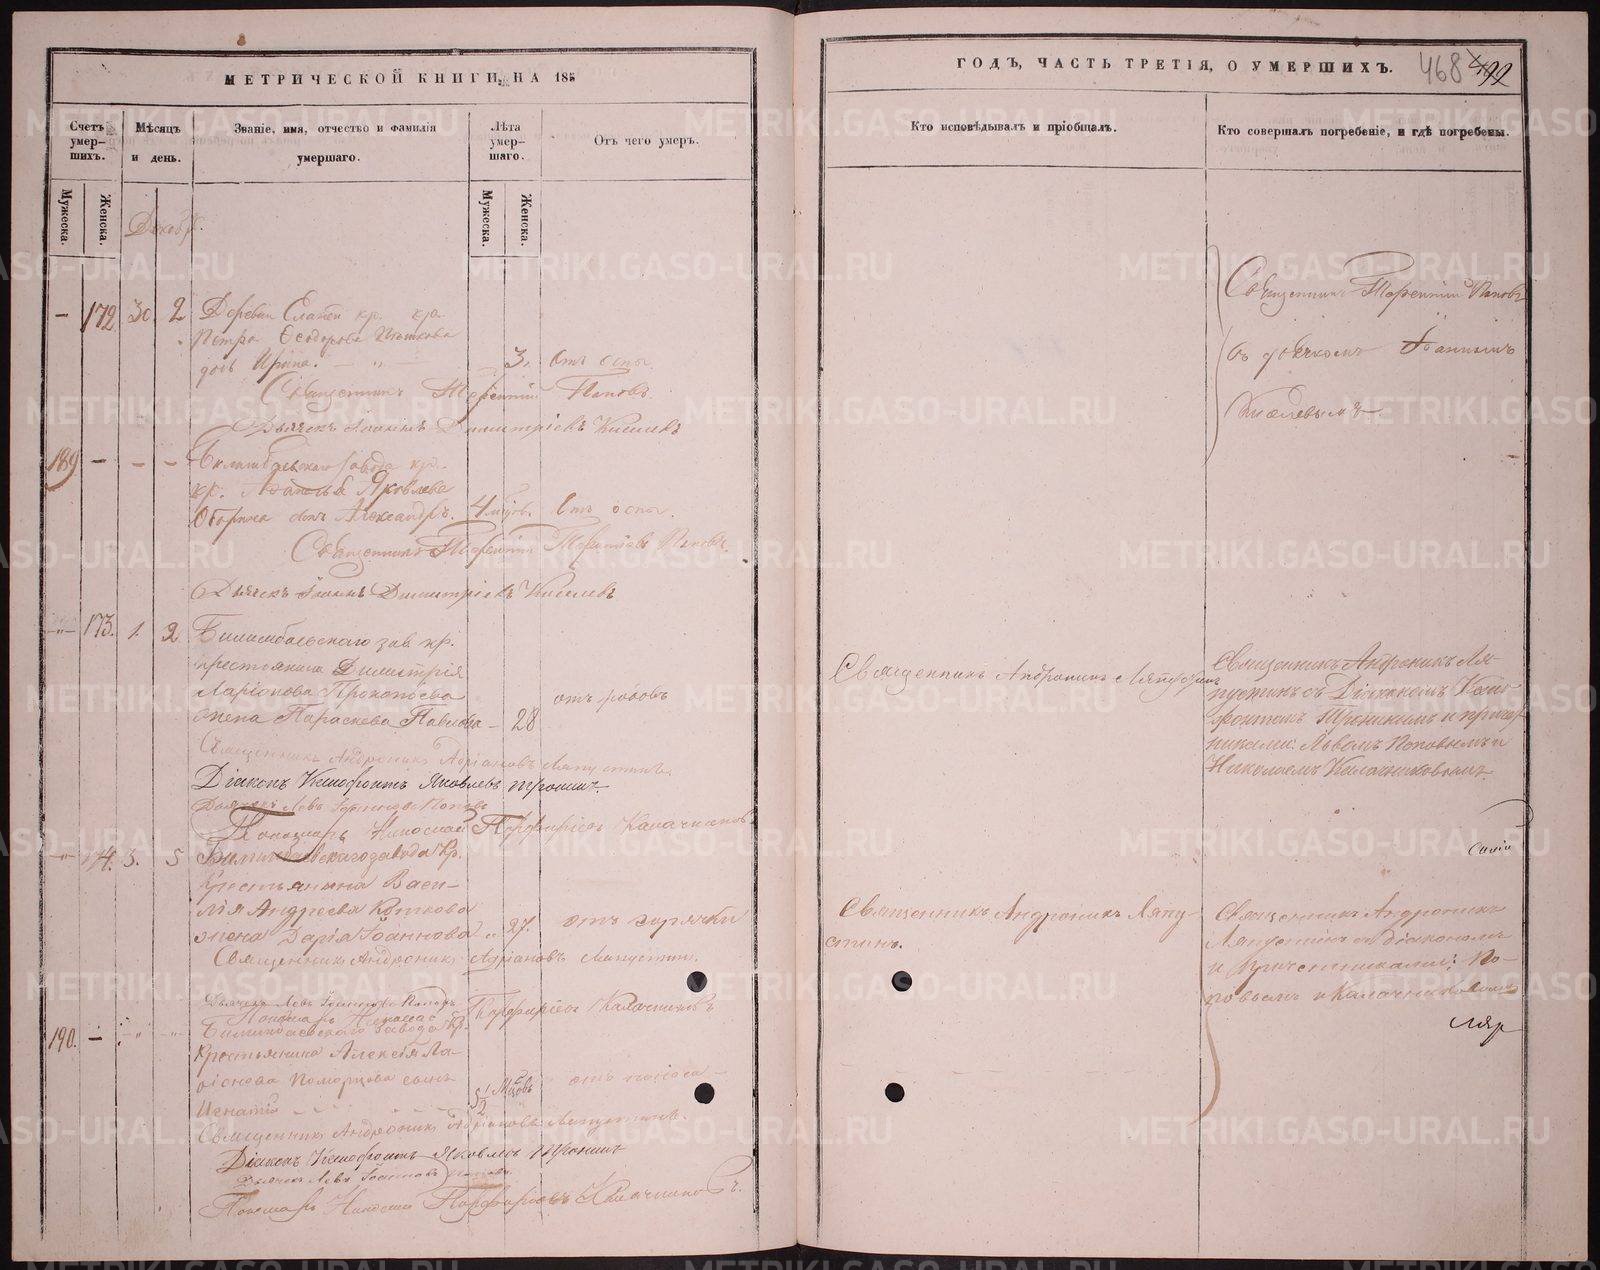 МЕТРИЧЕСКОЙ КНИГИ, НА 185
Счетъ умер- шихъ.
Мѣсяцъ и день.
Званіе, имя, отчество и фамилія умершаго.
Лѣта умер- шаго.
Отъ чего умеръ.
Мужеска.
Женска.
Мужеска.
Женска.
Декабр.
— 172 30 2 Деревни кр. кр.
Петра Ѳеодорова
дочь Ирина. 3. Отъ оспы.
Священникъ Терентій Поповъ
Дьячекъ Іоаннъ Димитріевъ Киселевъ
189 — — — Билимбаевскаго завода кр.
кр. Яковлева
сынъ Александръ. 4 Отъ оспы.
Священникъ Терентій Терентіевъ Поповъ.
Дьячекъ Іоаннъ Димитріевъ Киселевъ
173. 1. 2 Билимбаевскаго зав. кр.
крестьянина Димитрія
Ларіонова Прокопьева
жена Параскева Павлова — 28 отъ родовъ
Священникъ Андроникъ Адріановъ Ляпустинъ.
Діаконъ Ксенофонтъ Яковлевъ Тронинъ.
Дьячекъ Левъ Іоанновъ Поповъ
Пономарь Николай Порфирьевъ Калачниковъ
174. 3. 5 Билимбаевскаго завода Кр.
Крестьянина Васи-
лія Андреева Коткова
жена Дарія Іоаннова 27. отъ горячки
Священникъ Андроникъ Адріановъ Ляпустин.
Дьячекъ Левъ Іоанновъ Поповъ
Пономарь Николай Порфирьевъ Калачниковъ
190. — Билимбаевскаго завода Кр.
Крестьянина Алексѣя Ла-
ріонова Поморцова сынъ
Игнатій 5 1/2 Мѣсцовъ отъ поноса
Священникъ Андроникъ Адріановъ Ляпустинъ.
Діаконъ Ксенофонтъ Яковлевъ Тронинъ
Дьячекъ Левъ Іоанновъ Поповъ
Пономарь Николай Порфирьевъ Калачниковъ.
ГОДЪ, ЧАСТЬ ТРЕТІЯ, О УМЕРШИХЪ.
468
Кто исповѣдывалъ и пріобщалъ.
Кто совершалъ погребеніе, и гдѣ погребены.
Священникъ Терентій Поповъ
съ дьячкомъ Іоанномъ
Киселевымъ
Священникъ Андроникъ Ляпустинъ
Священникъ Андроникъ Ля-
пустинъ съ Діакономъ Ксено-
фонтомъ Тронинымъ и причет-
никами: Львомъ Поповымъ и
Николаемъ Калачниковымъ
Священникъ Андроникъ Ляпу-
стинъ.
Священникъ Андроникъ
Ляпустинъ съ діакономъ
и Причетниками: По-
повымъ и Калачниковымъ
METRIKI.GASO-URAL.RU